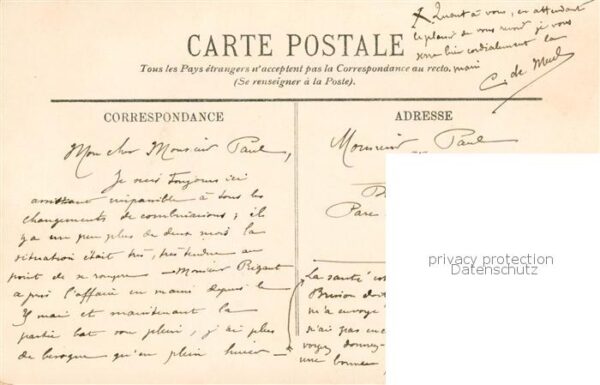 X Quant à vous, en attendant
le plaisir de vous revoir je vous
serre bien cordialement la
main
C. de
CARTE POSTALE
Tous les Pays étrangers n'acceptent pas la Correspondance au recto.
(Se renseigner à la Poste).
CORRESPONDANCE
Mon cher Monsieur Paul,
Je suis toujours ici
assistant impassible à tous les
changements de combinaisons ; il
y a un peu plus de deux mois la
situation était très, très tendue au
point de se rompre — Monsieur
a pris l'affaire en mains depuis le
mai et maintenant la
partie bat son plein, j'ai plus
de besogne qu'en plein hiver —
ADRESSE
Monsieur Paul
Parc
La santé
doit
n'a envoyé
n'ai pas
voyez donnez
une bonne
privacy protection
Datenschutz